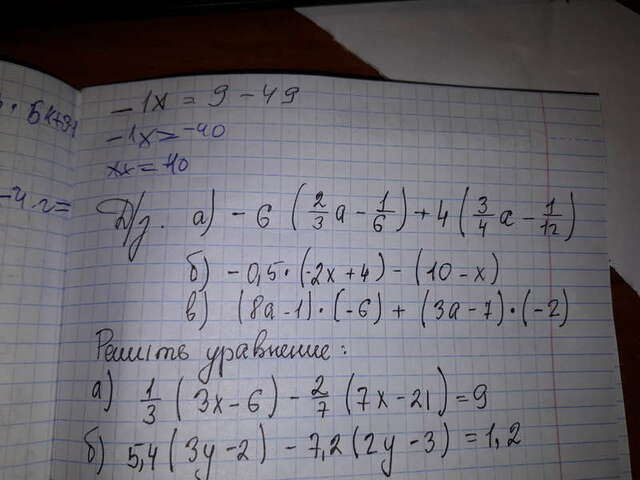 -1x = 9 - 49
-1x = -40
x = 40
5к+9
-4 · г =
Д/з. а) -6 (2/3 a - 1/6) + 4 (3/4 a - 1/12)
б) -0,5 · (-2x + 4) - (10 - x)
в) (8a - 1) · (-6) + (3a - 7) · (-2)
Решить уравнение:
а) 1/3 (3x - 6) - 2/7 (7x - 21) = 9
б) 5,4 (3y - 2) - 7,2 (2y - 3) = 1,2